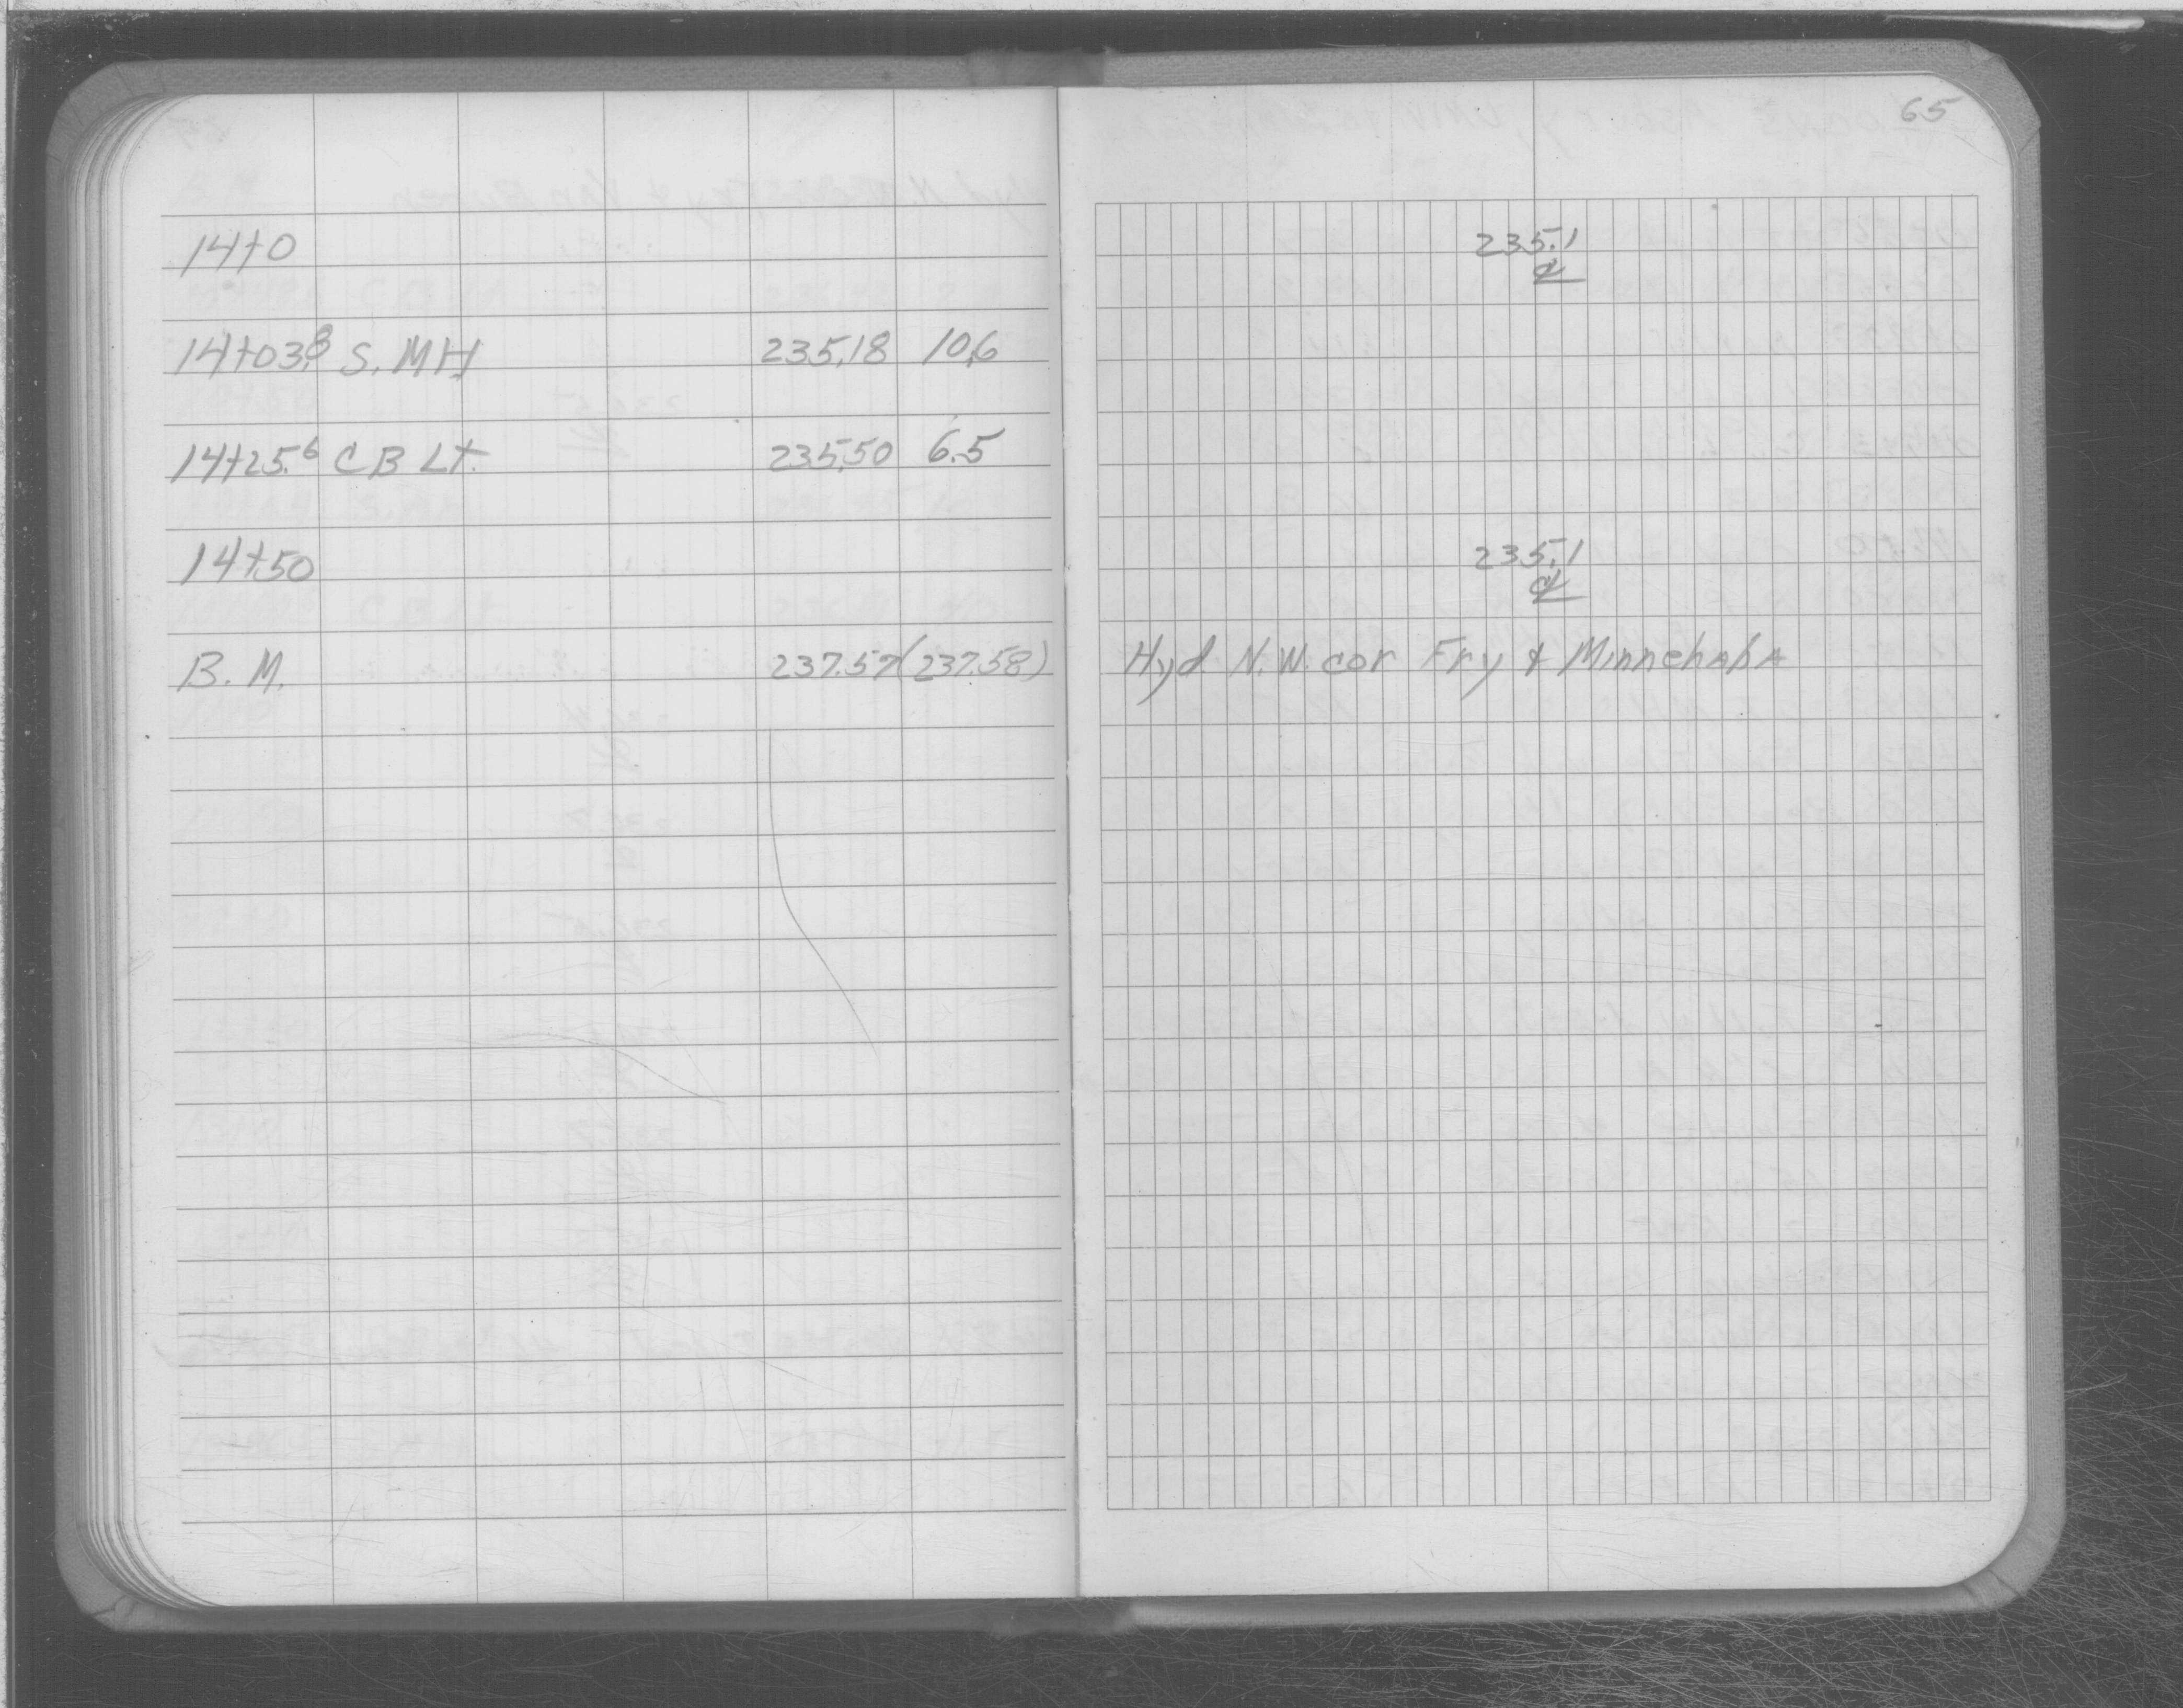 65
14+0 235.1
℄
14+03.8 S. MH 235.18 10.6
14+25.6 C B Lt. 235.50 6.5
14+50 235.1
℄
B. M. 237.57 (237.58) Hyd. N.W. cor Fry & Minnehaha